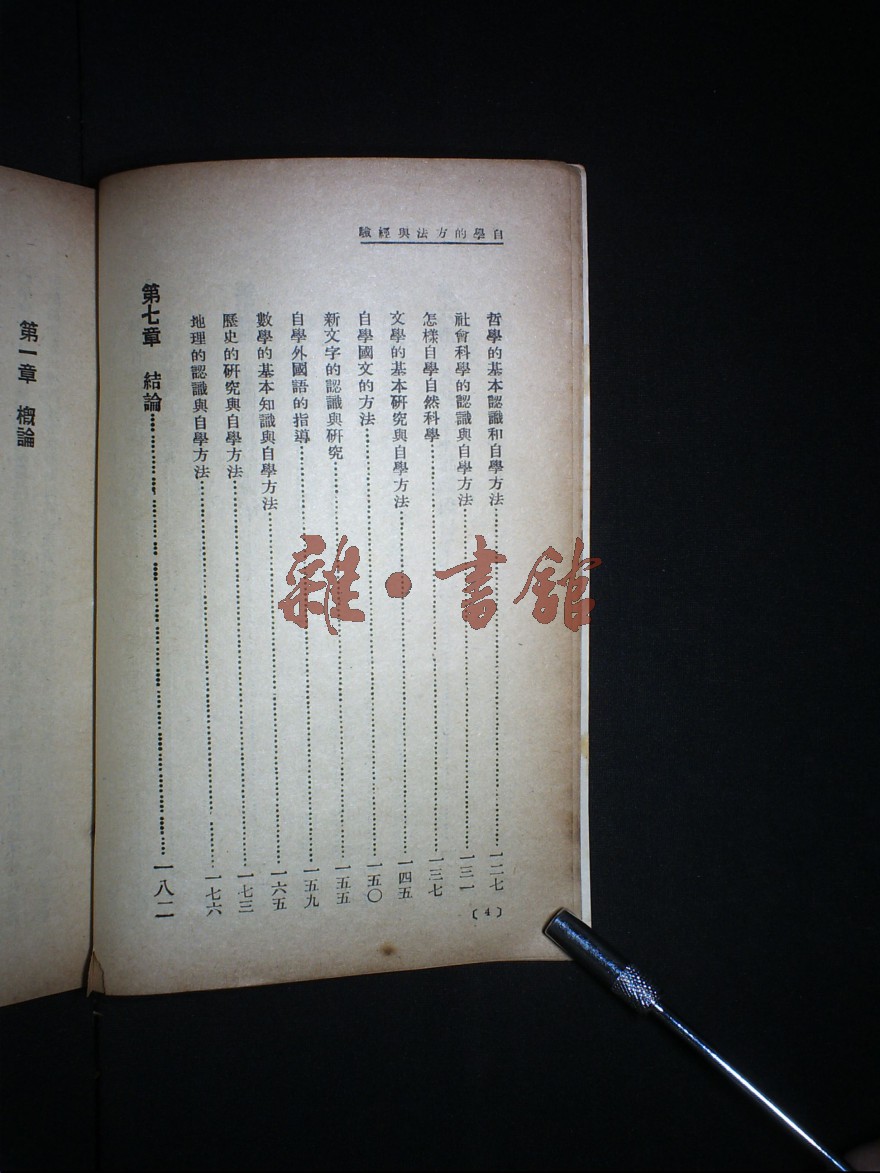 自學的方法與經驗
哲學的基本認識和自學方法……一二七
社會科學的認識與自學方法……一三一
怎樣自學自然科學……一三七
文學的基本研究與自學方法……一四五
自學國文的方法……一五〇
新文字的認識與研究……一五五
自學外國語的指導……一五九
數學的基本知識與自學方法……一六五
歷史的研究與自學方法……一七三
地理的認識與自學方法……一七六
第七章 結論……一八二
〔4〕
第一章 概論
雜·書館